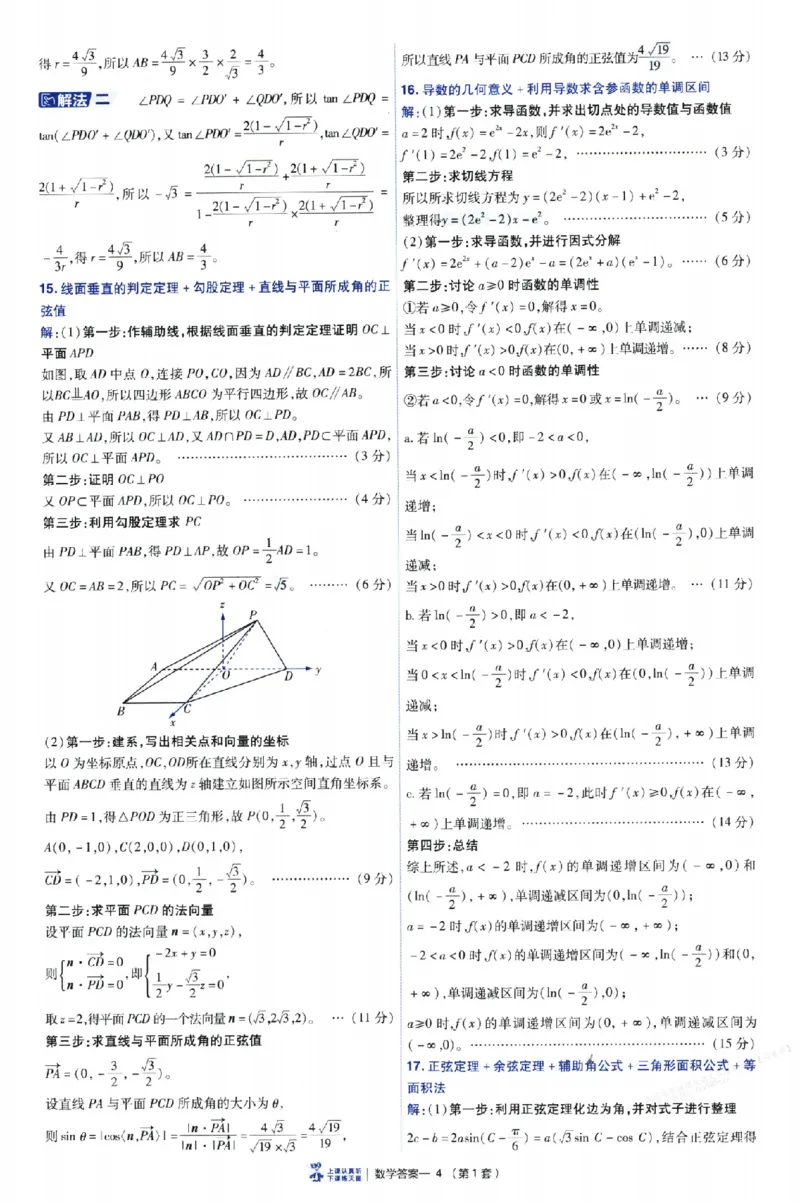 得 r = 4√3/9 ,所以 AB = 4√3/9 × 3/2 × 2/√3 = 4/3。
解法二 ∠PDQ = ∠PDO′ + ∠QDO′,所以 tan ∠PDQ =
tan(∠PDO′ + ∠QDO′),又 tan∠PDO′ = 2(1 - √(1 - r²))/r ,tan∠QDO′ =
2(1 + √(1 - r²))/r ,所以 - √3 = (2(1 - √(1 - r²))/r + 2(1 + √(1 - r²))/r) / (1 - 2(1 - √(1 - r²))/r × 2(1 + √(1 - r²))/r) =
- 4/3r ,得 r = 4√3/9 ,所以 AB = 4/3。
15. 线面垂直的判定定理 + 勾股定理 + 直线与平面所成角的正
弦值
解:(1)第一步:作辅助线,根据线面垂直的判定定理证明 OC⊥
平面 APD
如图,取 AD 中点 O,连接 PO,CO,因为 AD∥BC,AD = 2BC,所
以BC∥=AO,所以四边形 ABCO 为平行四边形,故 OC∥AB。
由 PD⊥平面 PAB,得 PD⊥AB,所以 OC⊥PD。
又 AB⊥AD,所以 OC⊥AD,又 AD∩PD = D,AD,PD⊂平面 APD,
所以 OC⊥平面 APD。 …………………………… (3 分)
第二步:证明 OC⊥PO
又 OP⊂平面 APD,所以 OC⊥PO。 ………………… (4 分)
第三步:利用勾股定理求 PC
由 PD⊥平面 PAB,得 PD⊥AP,故 OP = 1/2 AD = 1。
又 OC = AB = 2,所以 PC = √(OP² + OC²) = √5。 ……… (6 分)
z
P
A
O
D
y
B
C
x
(2)第一步:建系,写出相关点和向量的坐标
以 O 为坐标原点,OC,OD所在直线分别为 x,y 轴,过点 O 且与
平面 ABCD 垂直的直线为 z 轴建立如图所示空间直角坐标系。
由 PD = 1,得△POD 为正三角形,故 P(0, 1/2, √3/2)。
A(0, -1,0),C(2,0,0),D(0,1,0),
CD→ = ( -2,1,0),PD→ = (0, 1/2, - √3/2)。 ……………… (9 分)
第二步:求平面 PCD 的法向量
设平面 PCD 的法向量 n = (x,y,z),
则{n · CD→ = 0, n · PD→ = 0 ,即{ -2x + y = 0, 1/2 y - √3/2 z = 0 ,
取 z = 2,得平面 PCD 的一个法向量 n = (√3,2√3,2)。 … (11 分)
第三步:求直线与平面所成角的正弦值
PA→ = (0, - 3/2, - √3/2)。
设直线 PA 与平面 PCD 所成角的大小为 θ,
则 sin θ = |cos⟨n,PA→⟩| = |n · PA→|/(|n| · |PA→|) = 4√3/(√19 × √3) = 4√19/19 ,
所以直线 PA 与平面 PCD 所成角的正弦值为 4√19/19 。 … (13 分)
16. 导数的几何意义 + 利用导数求含参函数的单调区间
解:(1)第一步:求导函数,并求出切点处的导数值与函数值
a = 2 时,f(x) = e²ˣ - 2x,则 f ′(x) = 2e²ˣ - 2,
f ′(1) = 2e² - 2,f(1) = e² - 2, …………………… (3 分)
第二步:求切线方程
所以所求切线方程为 y = (2e² - 2)(x - 1) + e² - 2,
整理得y = (2e² - 2)x - e²。 ……………………… (5 分)
(2)第一步:求导函数,并进行因式分解
f ′(x) = 2e²ˣ + (a - 2)eˣ - a = (2eˣ + a)(eˣ - 1)。 …… (6 分)
第二步:讨论 a≥0 时函数的单调性
①若 a≥0,令 f ′(x) = 0,解得 x = 0。
当 x < 0 时,f ′(x) < 0,f(x)在( - ∞ ,0)上单调递减;
当 x > 0 时,f ′(x) > 0,f(x)在(0, + ∞ )上单调递增。 …… (8 分)
第三步:讨论 a < 0 时函数的单调性
②若 a < 0,令 f ′(x) = 0,解得 x = 0 或 x = ln( - a/2)。 … (9 分)
a. 若 ln( - a/2) < 0,即 - 2 < a < 0,
当 x < ln( - a/2)时,f ′(x) > 0,f(x)在( - ∞ ,ln( - a/2))上单调
递增;
当 ln( - a/2) < x < 0 时,f ′(x) < 0,f(x)在(ln( - a/2),0)上单调
递减;
当 x > 0 时,f ′(x) > 0,f(x)在(0, + ∞ )上单调递增。 … (11 分)
b. 若 ln( - a/2) > 0,即 a < - 2,
当 x < 0 时,f ′(x) > 0,f(x)在( - ∞ ,0)上单调递增;
当 0 < x < ln( - a/2)时,f ′(x) < 0,f(x)在(0,ln( - a/2))上单调
递减;
当 x > ln( - a/2)时,f ′(x) > 0,f(x)在(ln( - a/2), + ∞ )上单调
递增。 ………………………………………… (13 分)
c. 若 ln( - a/2) = 0,即 a = - 2,此时 f ′(x)≥0,f(x)在( - ∞ ,
+ ∞ )上单调递增。 ……………………………… (14 分)
第四步:总结
综上所述,a < - 2 时,f(x)的单调递增区间为( - ∞ ,0)和
(ln( - a/2), + ∞ ),单调递减区间为(0,ln( - a/2));
a = - 2 时,f(x)的单调递增区间为( - ∞ , + ∞ );
- 2 < a < 0 时,f(x)的单调递增区间为( - ∞ ,ln( - a/2))和(0,
+ ∞ ),单调递减区间为(ln( - a/2),0);
a≥0 时,f(x)的单调递增区间为(0, + ∞ ),单调递减区间为
( - ∞ ,0)。 ……………………………………… (15 分)
17. 正弦定理 + 余弦定理 + 辅助角公式 + 三角形面积公式 + 等
面积法
解:(1)第一步:利用正弦定理化边为角,并对式子进行整理
2c - b = 2asin(C - π/6) = a(√3sin C - cos C),结合正弦定理得
上课认真听
下课练天星
数学答案— 4 (第 1 套)